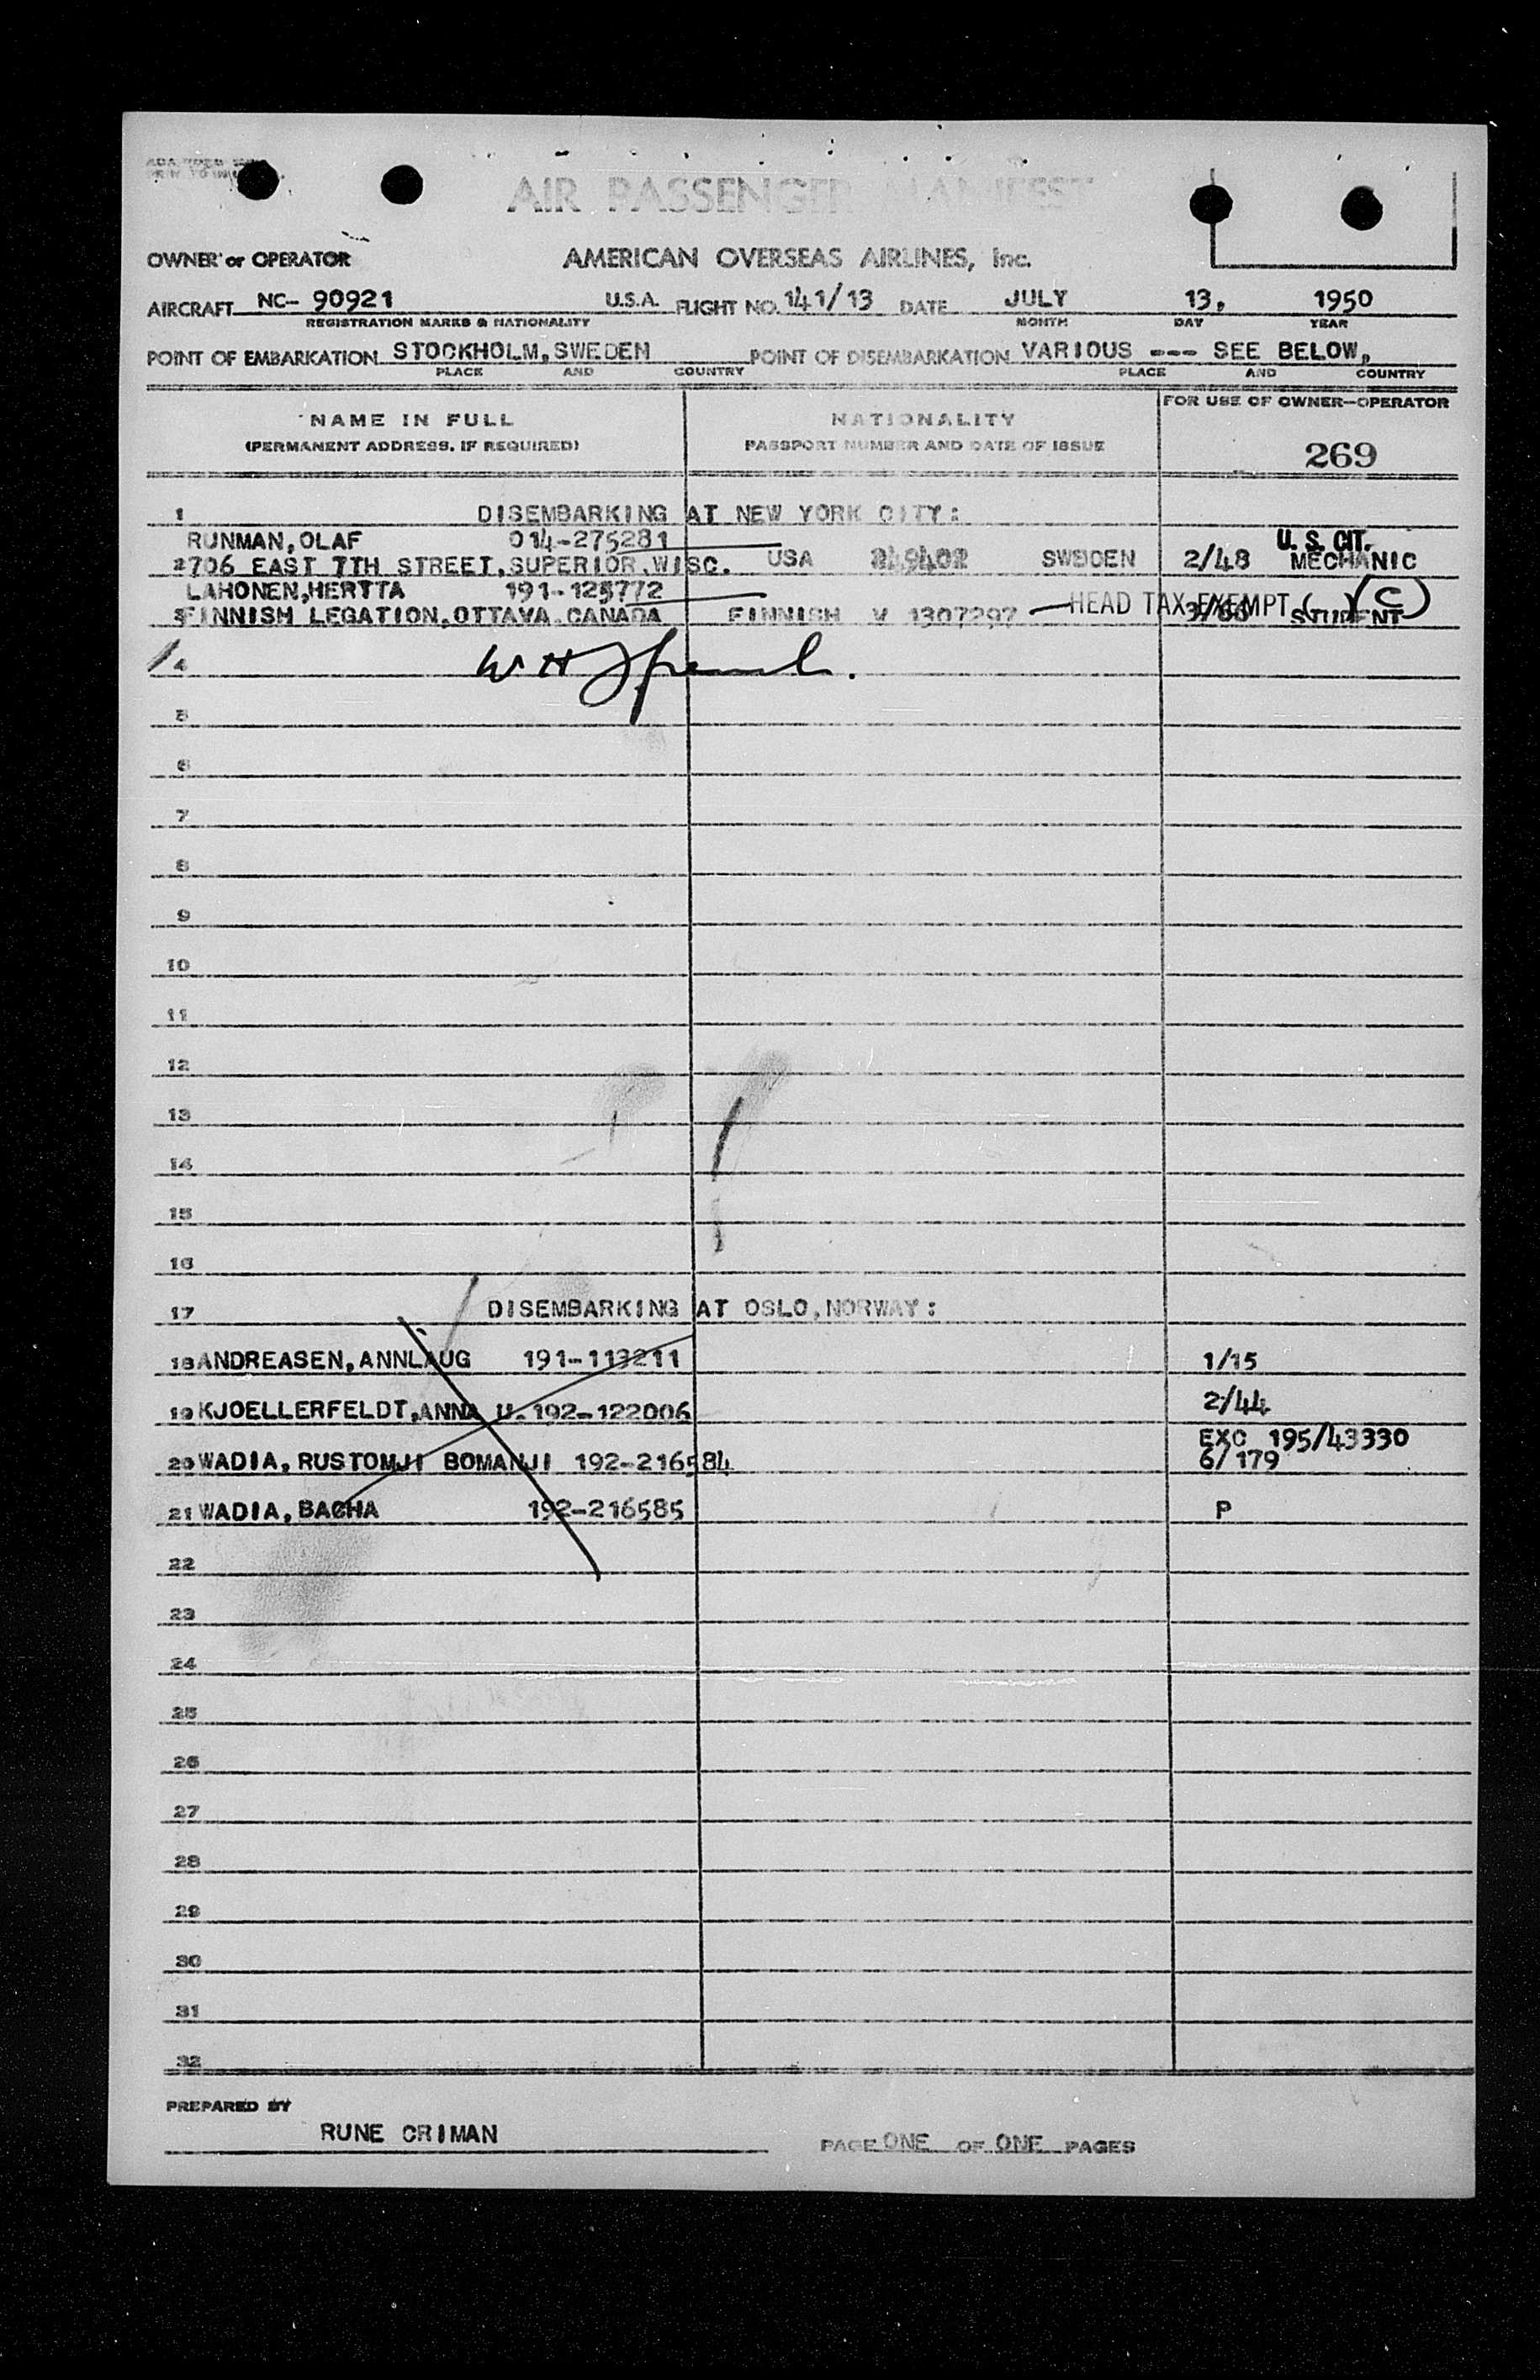 AIR PASSENGER MANIFEST
OWNER or OPERATOR AMERICAN OVERSEAS AIRLINES, Inc.
AIRCRAFT NC- 90921 U.S.A. FLIGHT NO. 141/13 DATE JULY 13, 1950
REGISTRATION MARKS & NATIONALITY MONTH DAY YEAR
POINT OF EMBARKATION STOCKHOLM, SWEDEN POINT OF DISEMBARKATION VARIOUS --- SEE BELOW,
PLACE AND COUNTRY PLACE AND COUNTRY
NAME IN FULL NATIONALITY FOR USE OF OWNER-OPERATOR
(PERMANENT ADDRESS, IF REQUIRED) PASSPORT NUMBER AND DATE OF ISSUE 269
1 DISEMBARKING AT NEW YORK CITY:
RUNMAN, OLAF 014-275281 U. S. CIT.
2 706 EAST 7TH STREET, SUPERIOR, WISC. USA SWEDEN 2/48 MECHANIC
LAHONEN, HERTTA 191-125772 HEAD TAX EXEMPT ( ) (C)
3 FINNISH LEGATION, OTTAVA, CANADA FINNISH V 1307297 STUDENT
4 W H
5
6
7
8
9
10
11
12
13
14
15
16
17 DISEMBARKING AT OSLO, NORWAY:
18 ANDREASEN, ANNLAUG 191-113211 1/15
19 KJOELLERFELDT, ANNA U. 192-122006 2/44
EXC 195/43330
20 WADIA, RUSTOMJI BOMANJI 192-216584 6/179
21 WADIA, BACHA 192-216585 P
22
23
24
25
26
27
28
29
30
31
32
PREPARED BY
RUNE CRIMAN PAGE ONE OF ONE PAGES